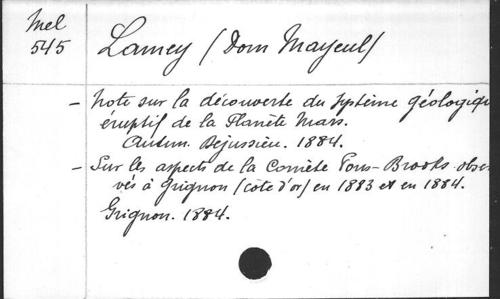 Mel
545
Lamey (Dom Mayeul)
- Note sur la découverte du système géologiqu
éruptif de la Planète Mars.
Autun. Dejussieu. 1884.
- Sur les aspects de la Comète Pons-Brooks obser
vés à Grignon (côte d'or) en 1883 et en 1884.
Grignon. 1884.